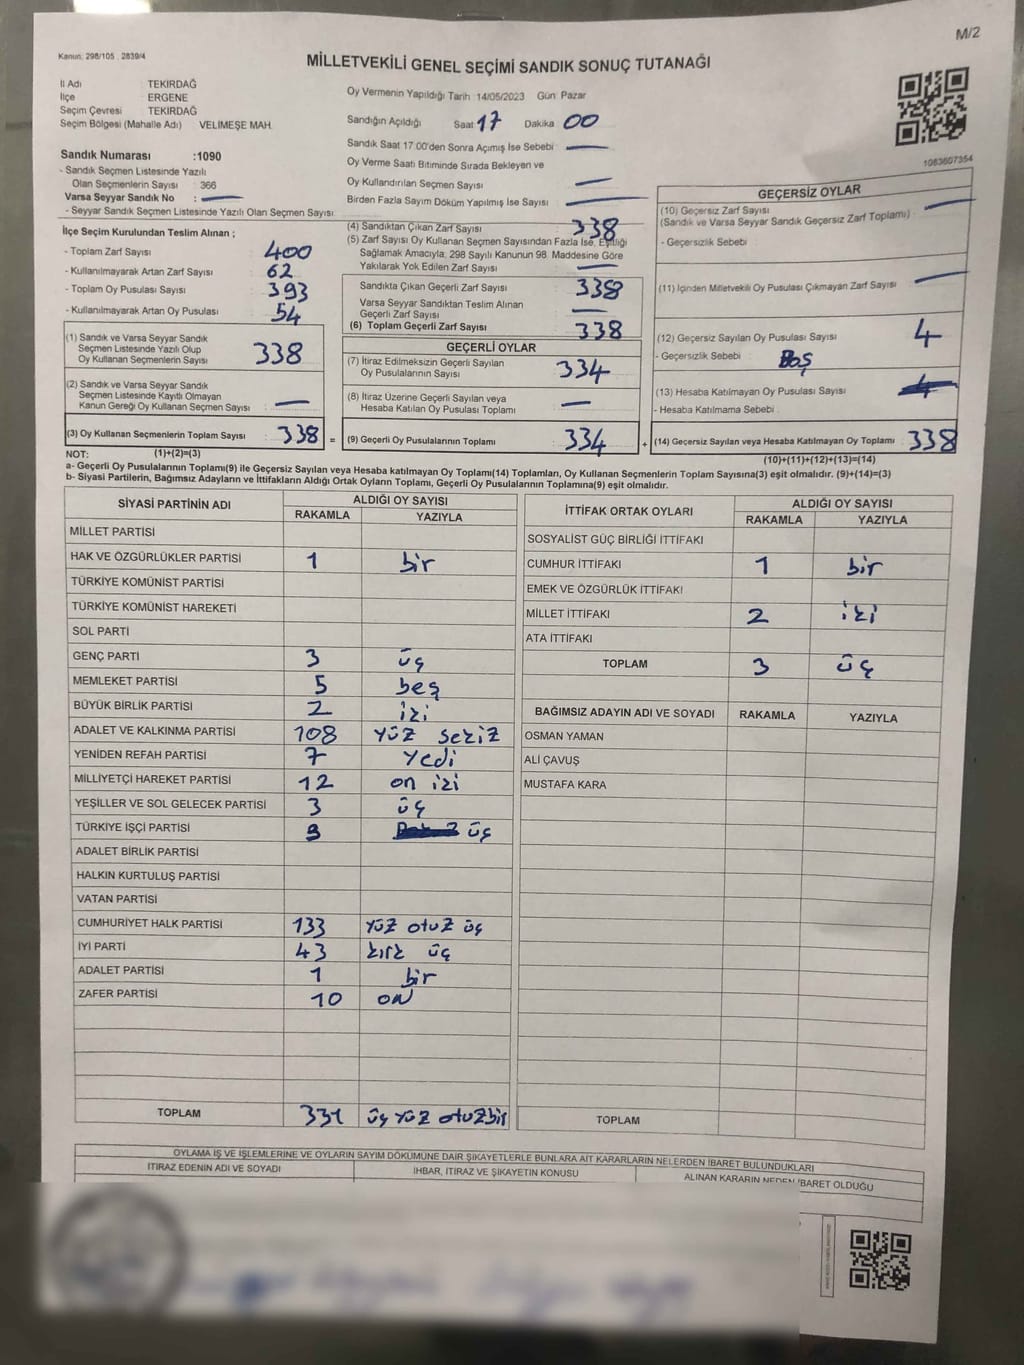 M/2
Kanun: 298/105 , 2839/4
MİLLETVEKİLİ GENEL SEÇİMİ SANDIK SONUÇ TUTANAĞI
İl Adı TEKİRDAĞ
İlçe ERGENE
Seçim Çevresi TEKİRDAĞ
Seçim Bölgesi (Mahalle Adı) VELİMEŞE MAH.
Oy Vermenin Yapıldığı Tarih 14/05/2023 Gün: Pazar
Sandığın Açıldığı Saat 17 Dakika 00
Sandık Saat 17.00'den Sonra Açımış İse Sebebi : —
Oy Verme Saati Bitiminde Sırada Bekleyen ve
Oy Kullandırılan Seçmen Sayısı : —
Birden Fazla Sayım Döküm Yapılmış İse Sayısı : —
1083607354
Sandık Numarası :1090
- Sandık Seçmen Listesinde Yazılı
Olan Seçmenlerin Sayısı : 366
Varsa Seyyar Sandık No : —
- Seyyar Sandık Seçmen Listesinde Yazılı Olan Seçmen Sayısı :
İlçe Seçim Kurulundan Teslim Alınan ;
- Toplam Zarf Sayısı : 400
- Kullanılmayarak Artan Zarf Sayısı : 62
- Toplam Oy Pusulası Sayısı : 393
- Kullanılmayarak Artan Oy Pusulası : 54
(1) Sandık ve Varsa Seyyar Sandık
Seçmen Listesinde Yazılı Olup
Oy Kullanan Seçmenlerin Sayısı : 338
(2) Sandık ve Varsa Seyyar Sandık
Seçmen Listesinde Kayıtlı Olmayan
Kanun Gereği Oy Kullanan Seçmen Sayısı : —
(3) Oy Kullanan Seçmenlerin Toplam Sayısı : 338 =
(4) Sandıktan Çıkan Zarf Sayısı : 338
(5) Zarf Sayısı Oy Kullanan Seçmen Sayısından Fazla İse, Eşitliği
Sağlamak Amacıyla, 298 Sayılı Kanunun 98. Maddesine Göre
Yakılarak Yok Edilen Zarf Sayısı : —
Sandıkta Çıkan Geçerli Zarf Sayısı : 338
Varsa Seyyar Sandıktan Teslim Alınan
Geçerli Zarf Sayısı : —
(6) Toplam Geçerli Zarf Sayısı : 338
GEÇERLİ OYLAR
(7) İtiraz Edilmeksizin Geçerli Sayılan
Oy Pusulalarının Sayısı : 334
(8) İtiraz Üzerine Geçerli Sayılan veya
Hesaba Katılan Oy Pusulası Toplamı : —
(9) Geçerli Oy Pusulalarının Toplamı : 334 +
GEÇERSİZ OYLAR
(10) Geçersiz Zarf Sayısı : —
(Sandık ve Varsa Seyyar Sandık Geçersiz Zarf Toplamı)
- Geçersizlik Sebebi :
(11) İçinden Milletvekili Oy Pusulası Çıkmayan Zarf Sayısı : —
(12) Geçersiz Sayılan Oy Pusulası Sayısı : 4
- Geçersizlik Sebebi : Boş
(13) Hesaba Katılmayan Oy Pusulası Sayısı :
- Hesaba Katılmama Sebebi :
(14) Geçersiz Sayılan veya Hesaba Katılmayan Oy Toplamı : 338
NOT: (1)+(2)=(3)
(10)+(11)+(12)+(13)=(14)
a- Geçerli Oy Pusulasının Toplamı(9) ile Geçersiz Sayılan veya Hesaba katılmayan Oy Toplamı(14) Toplamları, Oy Kullanan Seçmenlerin Toplam Sayısına(3) eşit olmalıdır. (9)+(14)=(3)
b- Siyasi Partilerin, Bağımsız Adayların ve İttifakların Aldığı Ortak Oyların Toplamı, Geçerli Oy Pusulalarının Toplamına(9) eşit olmalıdır.
SİYASİ PARTİNİN ADI ALDIĞI OY SAYISI
RAKAMLA YAZIYLA
MİLLET PARTİSİ
HAK VE ÖZGÜRLÜKLER PARTİSİ 1 bir
TÜRKİYE KOMÜNİST PARTİSİ
TÜRKİYE KOMÜNİST HAREKETİ
SOL PARTİ
GENÇ PARTİ 3 üç
MEMLEKET PARTİSİ 5 beş
BÜYÜK BİRLİK PARTİSİ 2 iki
ADALET VE KALKINMA PARTİSİ 108 yüz sekiz
YENİDEN REFAH PARTİSİ 7 Yedi
MİLLİYETÇİ HAREKET PARTİSİ 12 on iki
YEŞİLLER VE SOL GELECEK PARTİSİ 3 üç
TÜRKİYE İŞÇİ PARTİSİ 3 üç
ADALET BİRLİK PARTİSİ
HALKIN KURTULUŞ PARTİSİ
VATAN PARTİSİ
CUMHURİYET HALK PARTİSİ 133 yüz otuz üç
İYİ PARTİ 43 kırk üç
ADALET PARTİSİ 1 bir
ZAFER PARTİSİ 10 on
TOPLAM 331 üç yüz otuzbir
İTTİFAK ORTAK OYLARI ALDIĞI OY SAYISI
RAKAMLA YAZIYLA
SOSYALİST GÜÇ BİRLİĞİ İTTİFAKI
CUMHUR İTTİFAKI 1 bir
EMEK VE ÖZGÜRLÜK İTTİFAKI
MİLLET İTTİFAKI 2 iki
ATA İTTİFAKI
TOPLAM 3 üç
BAĞIMSIZ ADAYIN ADI VE SOYADI RAKAMLA YAZIYLA
OSMAN YAMAN
ALİ ÇAVUŞ
MUSTAFA KARA
TOPLAM
OYLAMA İŞ VE İŞLEMLERİNE VE OYLARIN SAYIM DÖKÜMÜNE DAİR ŞİKAYETLERLE BUNLARA AİT KARARLARIN NELERDEN İBARET BULUNDUKLARI
İTİRAZ EDENİN ADI VE SOYADI İHBAR, İTİRAZ VE ŞİKAYETİN KONUSU ALINAN KARARIN NEDEN İBARET OLDUĞU